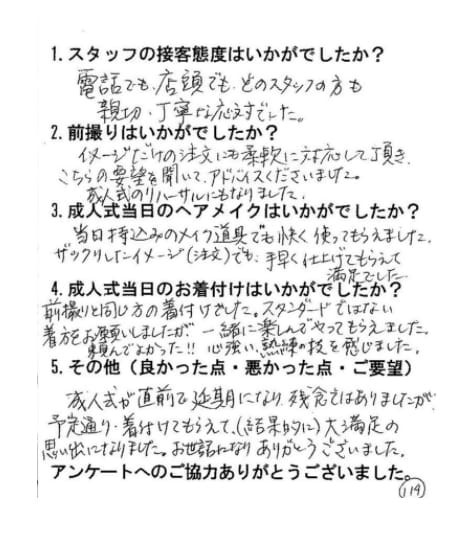 1. スタッフの接客態度はいかがでしたか？
電話でも、店頭でも、どのスタッフの方も
親切・丁寧な応対でした。
2. 前撮りはいかがでしたか？
イメージだけの注文にも柔軟に対応して頂き、
こちらの要望を聞いて、アドバイスくださいました。
成人式のリハーサルにもなりました。
3. 成人式当日のヘアメイクはいかがでしたか？
当日持込みのメイク道具でも快く使ってもらえました。
ザックリしたイメージ(注文)でも、手早く仕上げてもらえて
満足でした
4. 成人式当日のお着付けはいかがでしたか？
前撮りと同じ方の着付けでした。スタンダードではない
着方をお願いしましたが、一緒に楽しんでやってもらえました。
頼んでよかった!! 心強い、熟練の技を感じました。
5. その他（良かった点・悪かった点・ご要望）
成人式が直前で延期になり、残念ではありましたが
予定通り・着付けてもらえて、(結果的に) 大満足の
思い出になりました。お世話になりありがとうございました。
アンケートへのご協力ありがとうございました。
119